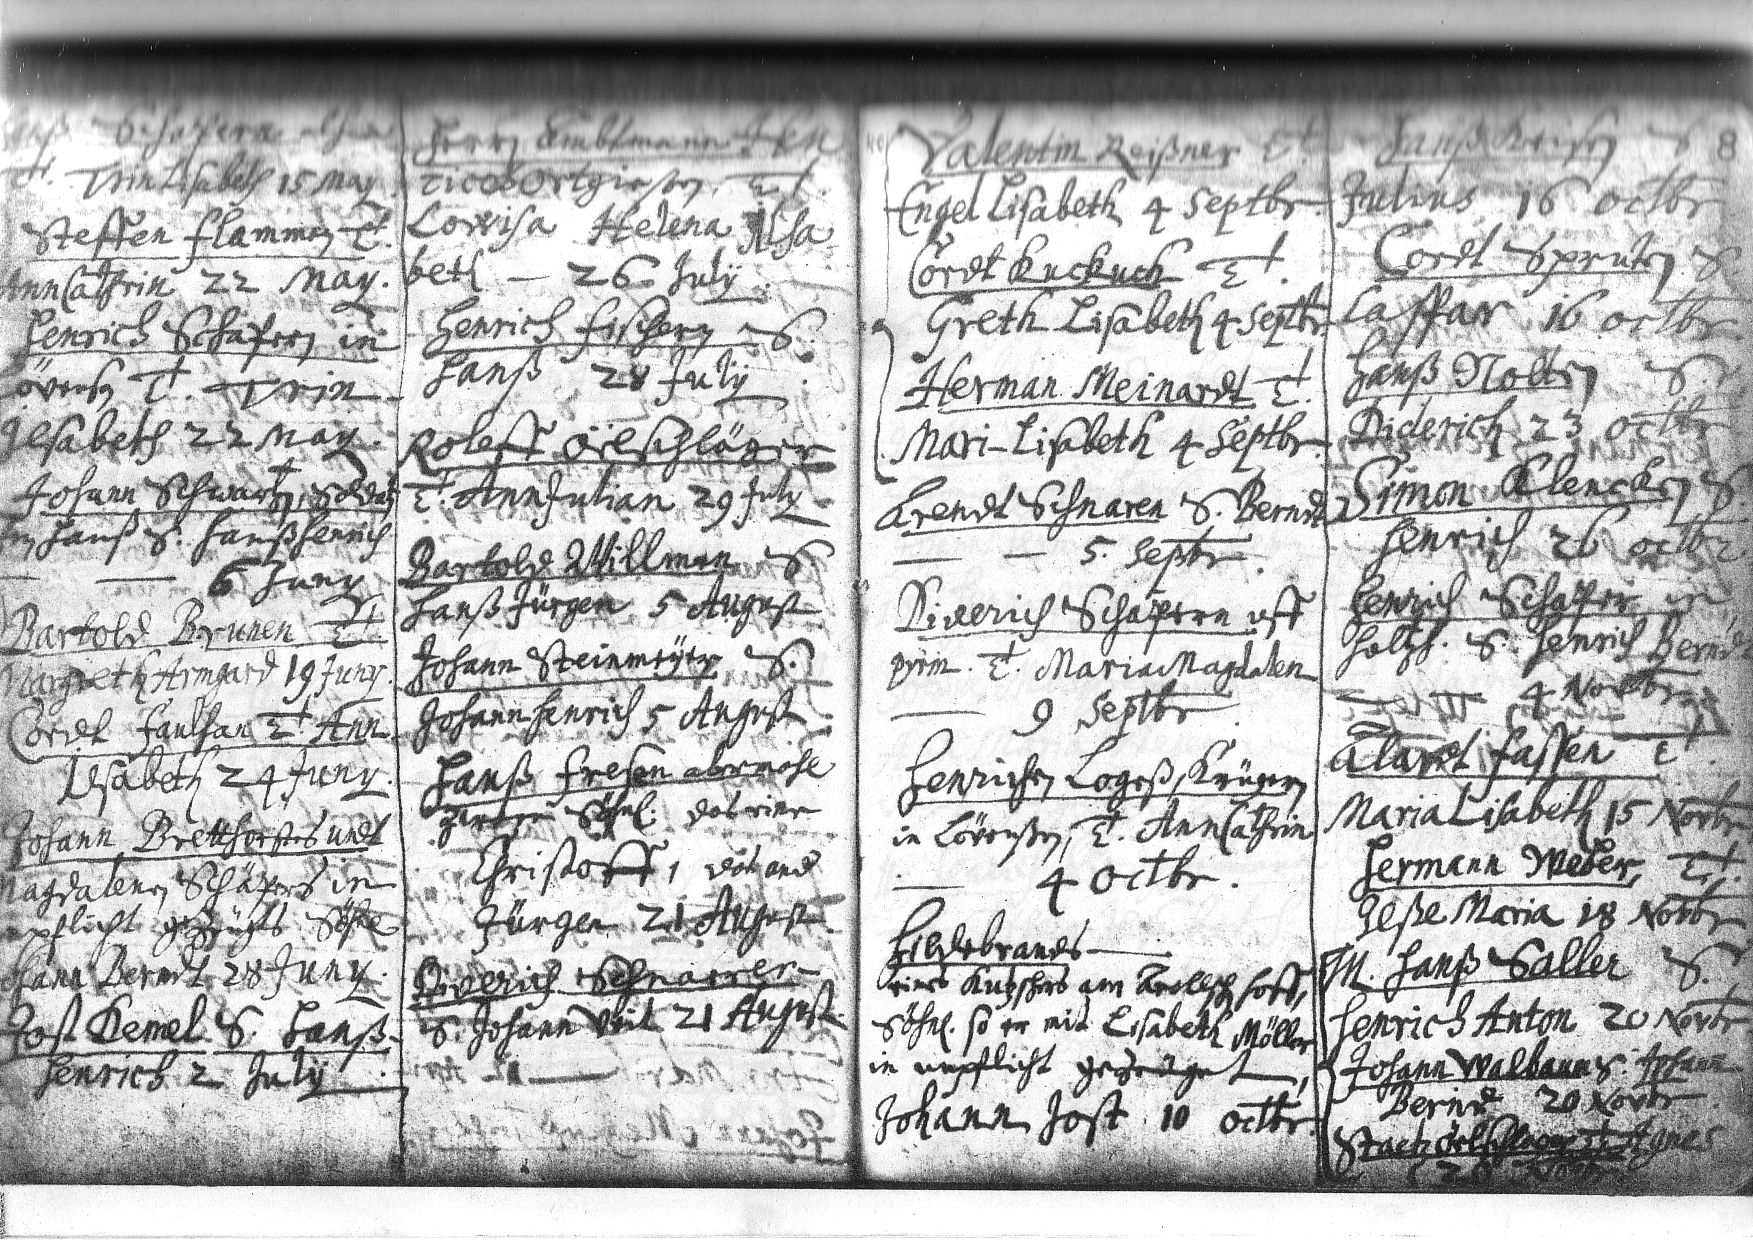 Hanß Schäfern
T. Trin Lisabeth 15 May
Steffen Flammen T.
Ann Cathrin 22 May.
Henrich Schäfern in
övensen T. Trin
Ilsabeth 22 May.
Johann Schwartzen, Soldat
Hanß S. Hanß Henrich
6 Juny
Bartold Brunen T.
Margreth Armgard 19 Juny.
Cordt Faulhan T. Ann
Ilsabeth 24 Juny.
Johann Bretthorsts undt
Magdalenen Schäfers in
unpflicht gezeugts Söhnl
Johann Berndt 28 Juny.
Jost Demel S. Hanß
Henrich 2 July
Herrn Ambtmann
Lowisa Helena Ilsa
beth — 26 July
Henrich Fischern S.
Hanß 28 July
Roleff Öelschläger
T. Ann Julian 29 July
Bartold Willman S
Hanß Jürgen 5 August
Johann Steinmeyer S.
Johann Henrich 5 August
Hanß Fresen
Söhnl.
Christoff,
Jürgen 21 August
Diderich Schnarren
S. Johann Veit 21 August.
Valentin Reißner T.
Engel Lisabeth 4 Septbr.
Cordt Kuckuck T.
Greth Lisabeth 4 Septbr
Herman Meinardt T.
Mari-Lisabeth 4 Septbr.
Arendt Schnaren S. Berndt
— — 5. Septbr.
Diderich Schäfern uff
T. Maria Magdalen
— 9 Septbr.
Henrichen Logeß, Krügern
in Lövensen, T. Ann Cathrin
— 4 Octbr.
Hildebrands —
eines Kutschers am Hoff,
Söhnl. so er mit Lisabeth Möller
in unpflicht gezeuget —,
Johann Jost 10 Octbr.
Hanß S
8
Julius 16 Octbr
Cordt Spruten S.
Caspar 16 Octbr
Hanß Nolten S.
Diderich 23 Octbr
Simon Klencken S
Henrich 26 Octbr
Henrich Schäfer in
Holtzh. S. Henrich Berndt
— 4 Novbr
Alardt Fassen T.
Maria Lisabeth 15 Novbr
Hermann Weber, T.
Ilße Maria 18 Novbr
M. Hanß Saller S.
Henrich Anton 20 Novbr
Johann Walbaum S. Johann
Bernd 20 Novbr
Agnes